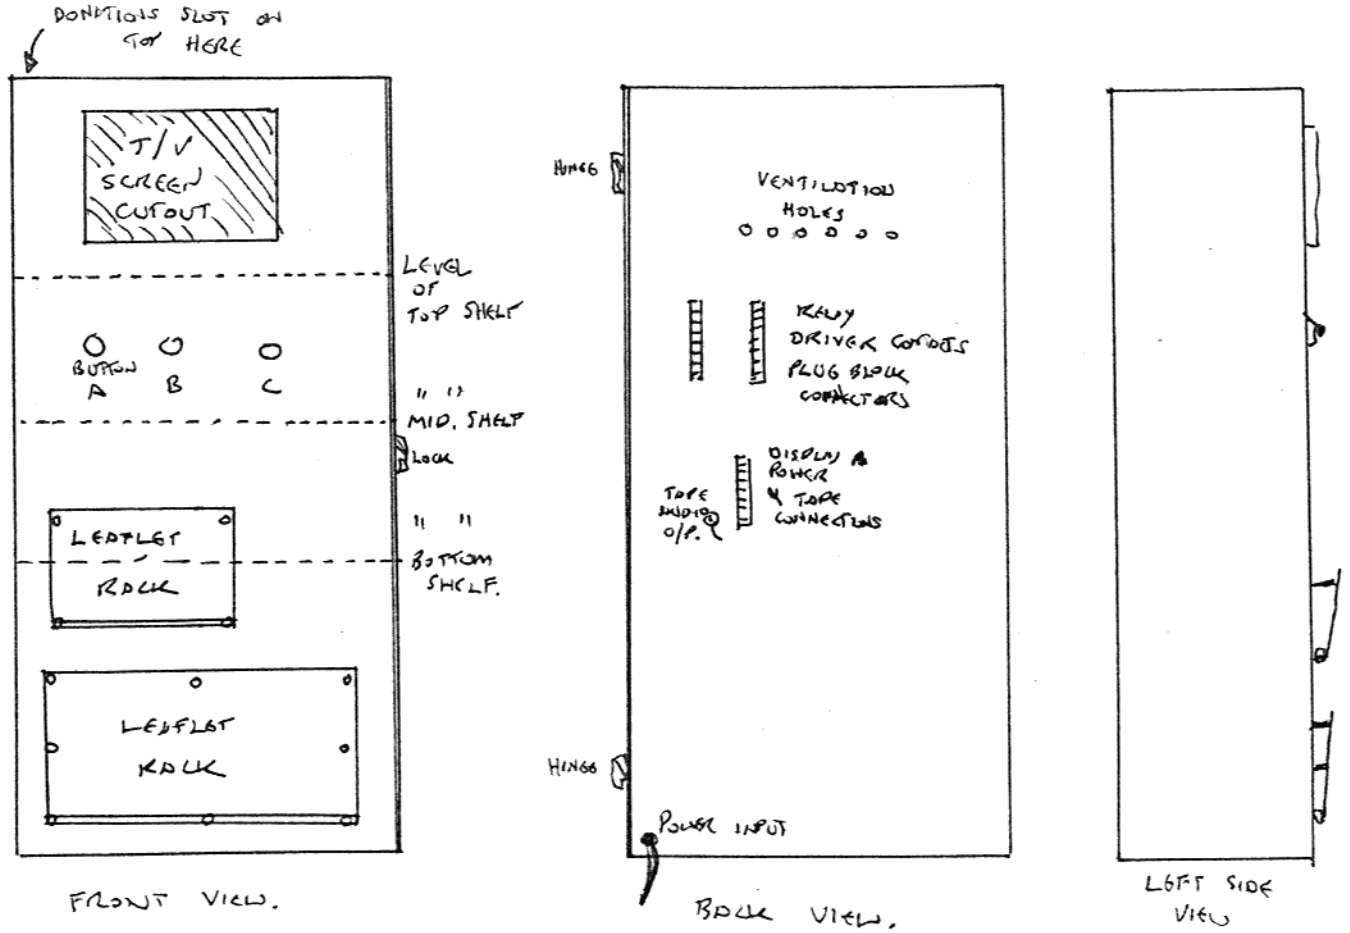 DONATIONS SLOT ON
TOP HERE
T/V
SCREEN
CUTOUT
LEVEL
OF
TOP SHELF
BUTTON
A B C
" "
MID. SHELF
LOCK
LEAFLET
RACK
" "
BOTTOM
SHELF.
LEAFLET
RACK
FRONT VIEW.
HINGE
VENTILATION
HOLES
RELAY
DRIVER CONTACTS
PLUG BLOCK
CONNECTORS
DISPLAY
POWER
& TAPE
CONNECTIONS
TAPE
AUDIO
O/P.
HINGE
POWER INPUT
BACK VIEW.
LEFT SIDE
VIEW